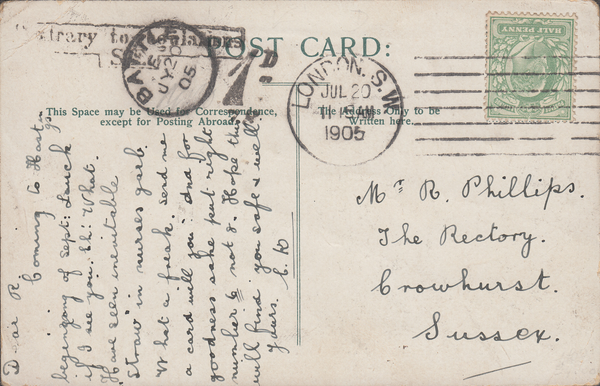 Contrary to Regulations
POST CARD:
BATTLE
JY 20
05
1D
LONDON. S.W
JUL 20
1905
HALF PENNY
This Space may be Used for Correspondence,
except for Posting Abroad.
The Address Only to be
Written here.
Dear R. Coming to
beginning of Sept:
if I see you. Eh! What.
Have seen inevitable
"Straw" in nurses garb.
What a freak. Send me
a card will you and for
goodness sake put right
number 6 not 8. Hope this
will find you safe & well
Yours.
Mr R. Phillips.
The Rectory.
Crowhurst.
Sussex.